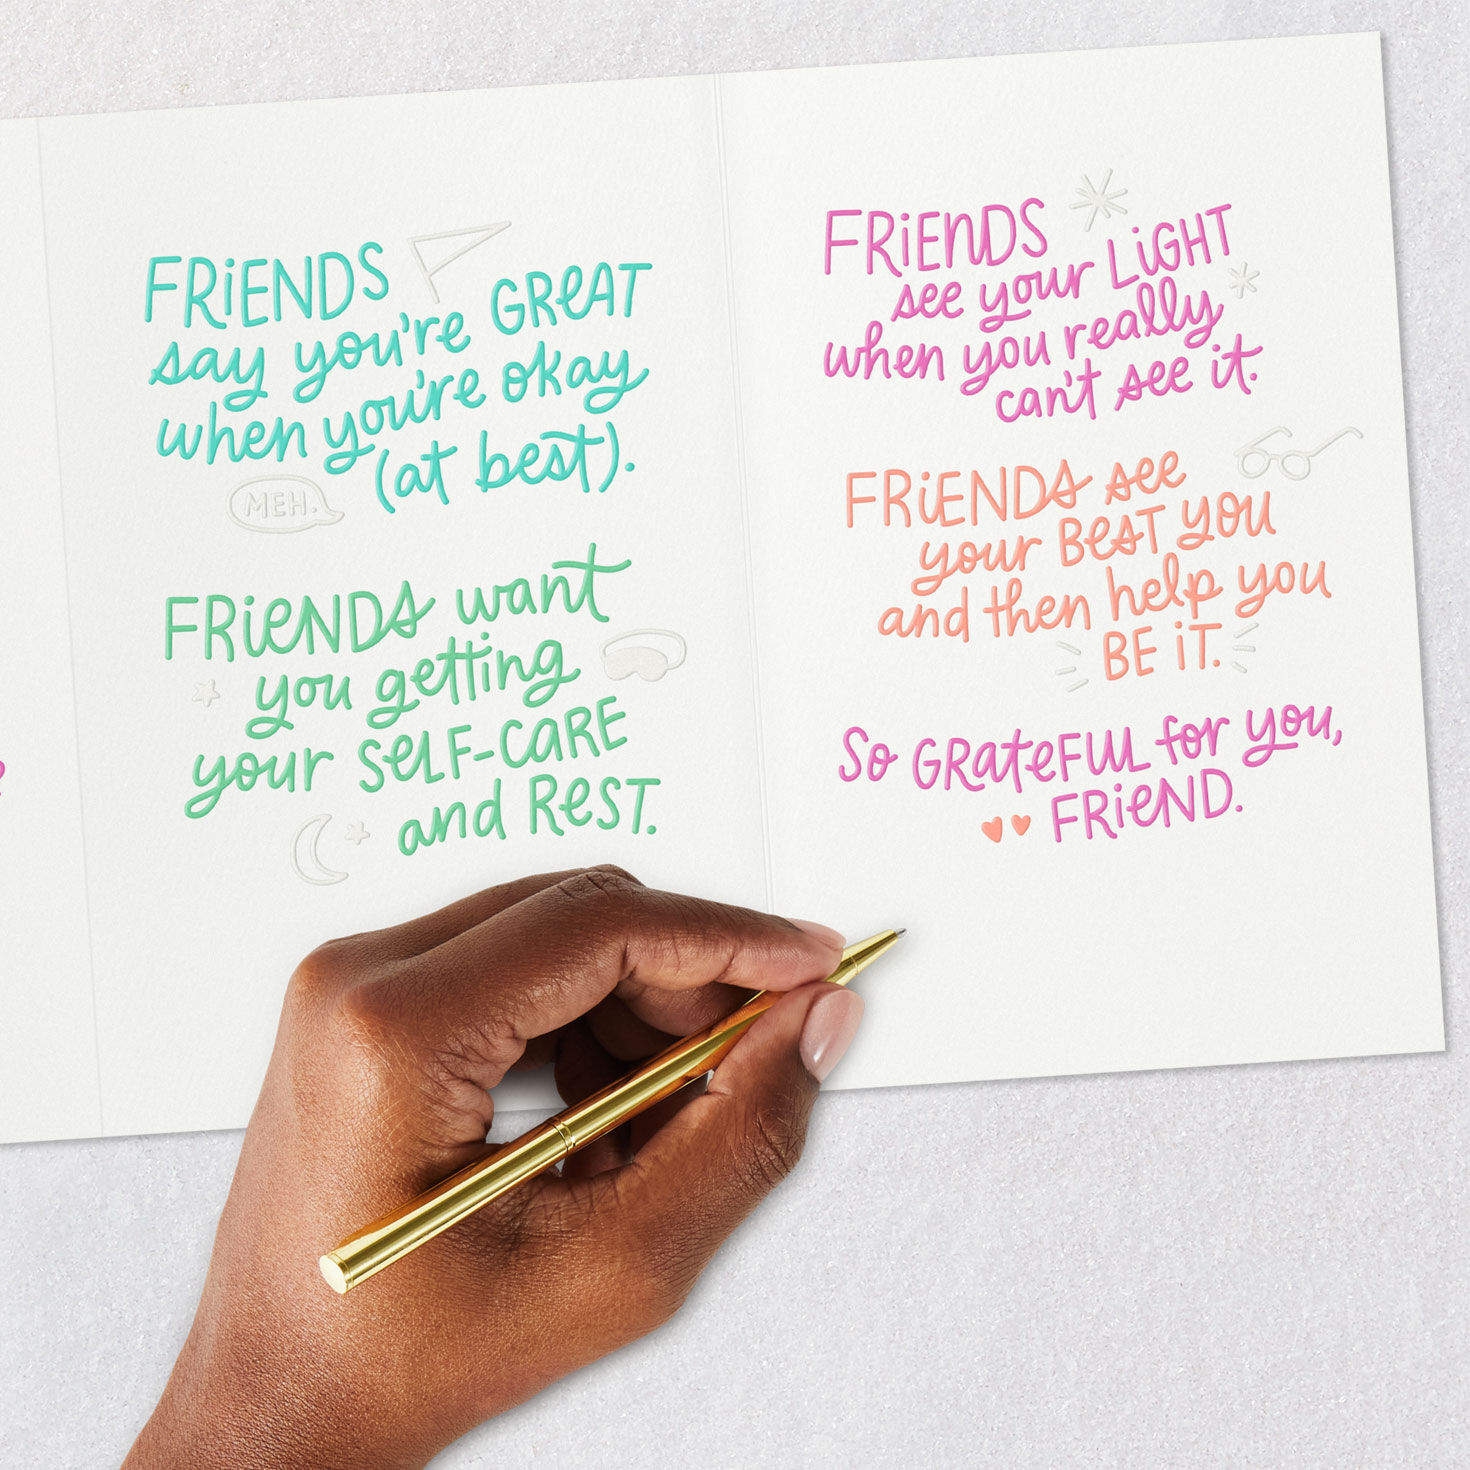 FRiENDS
say you're GREAT
when you're okay
(at best).
MEH.
FRiENDS want
you getting
your SELF-CARE
and REST.
FRiENDS
see your LiGHT
when you really
can't see it.
FRiENDS see
your BEST you
and then help you
BE iT.
So GRateFUL for you,
FRieND.